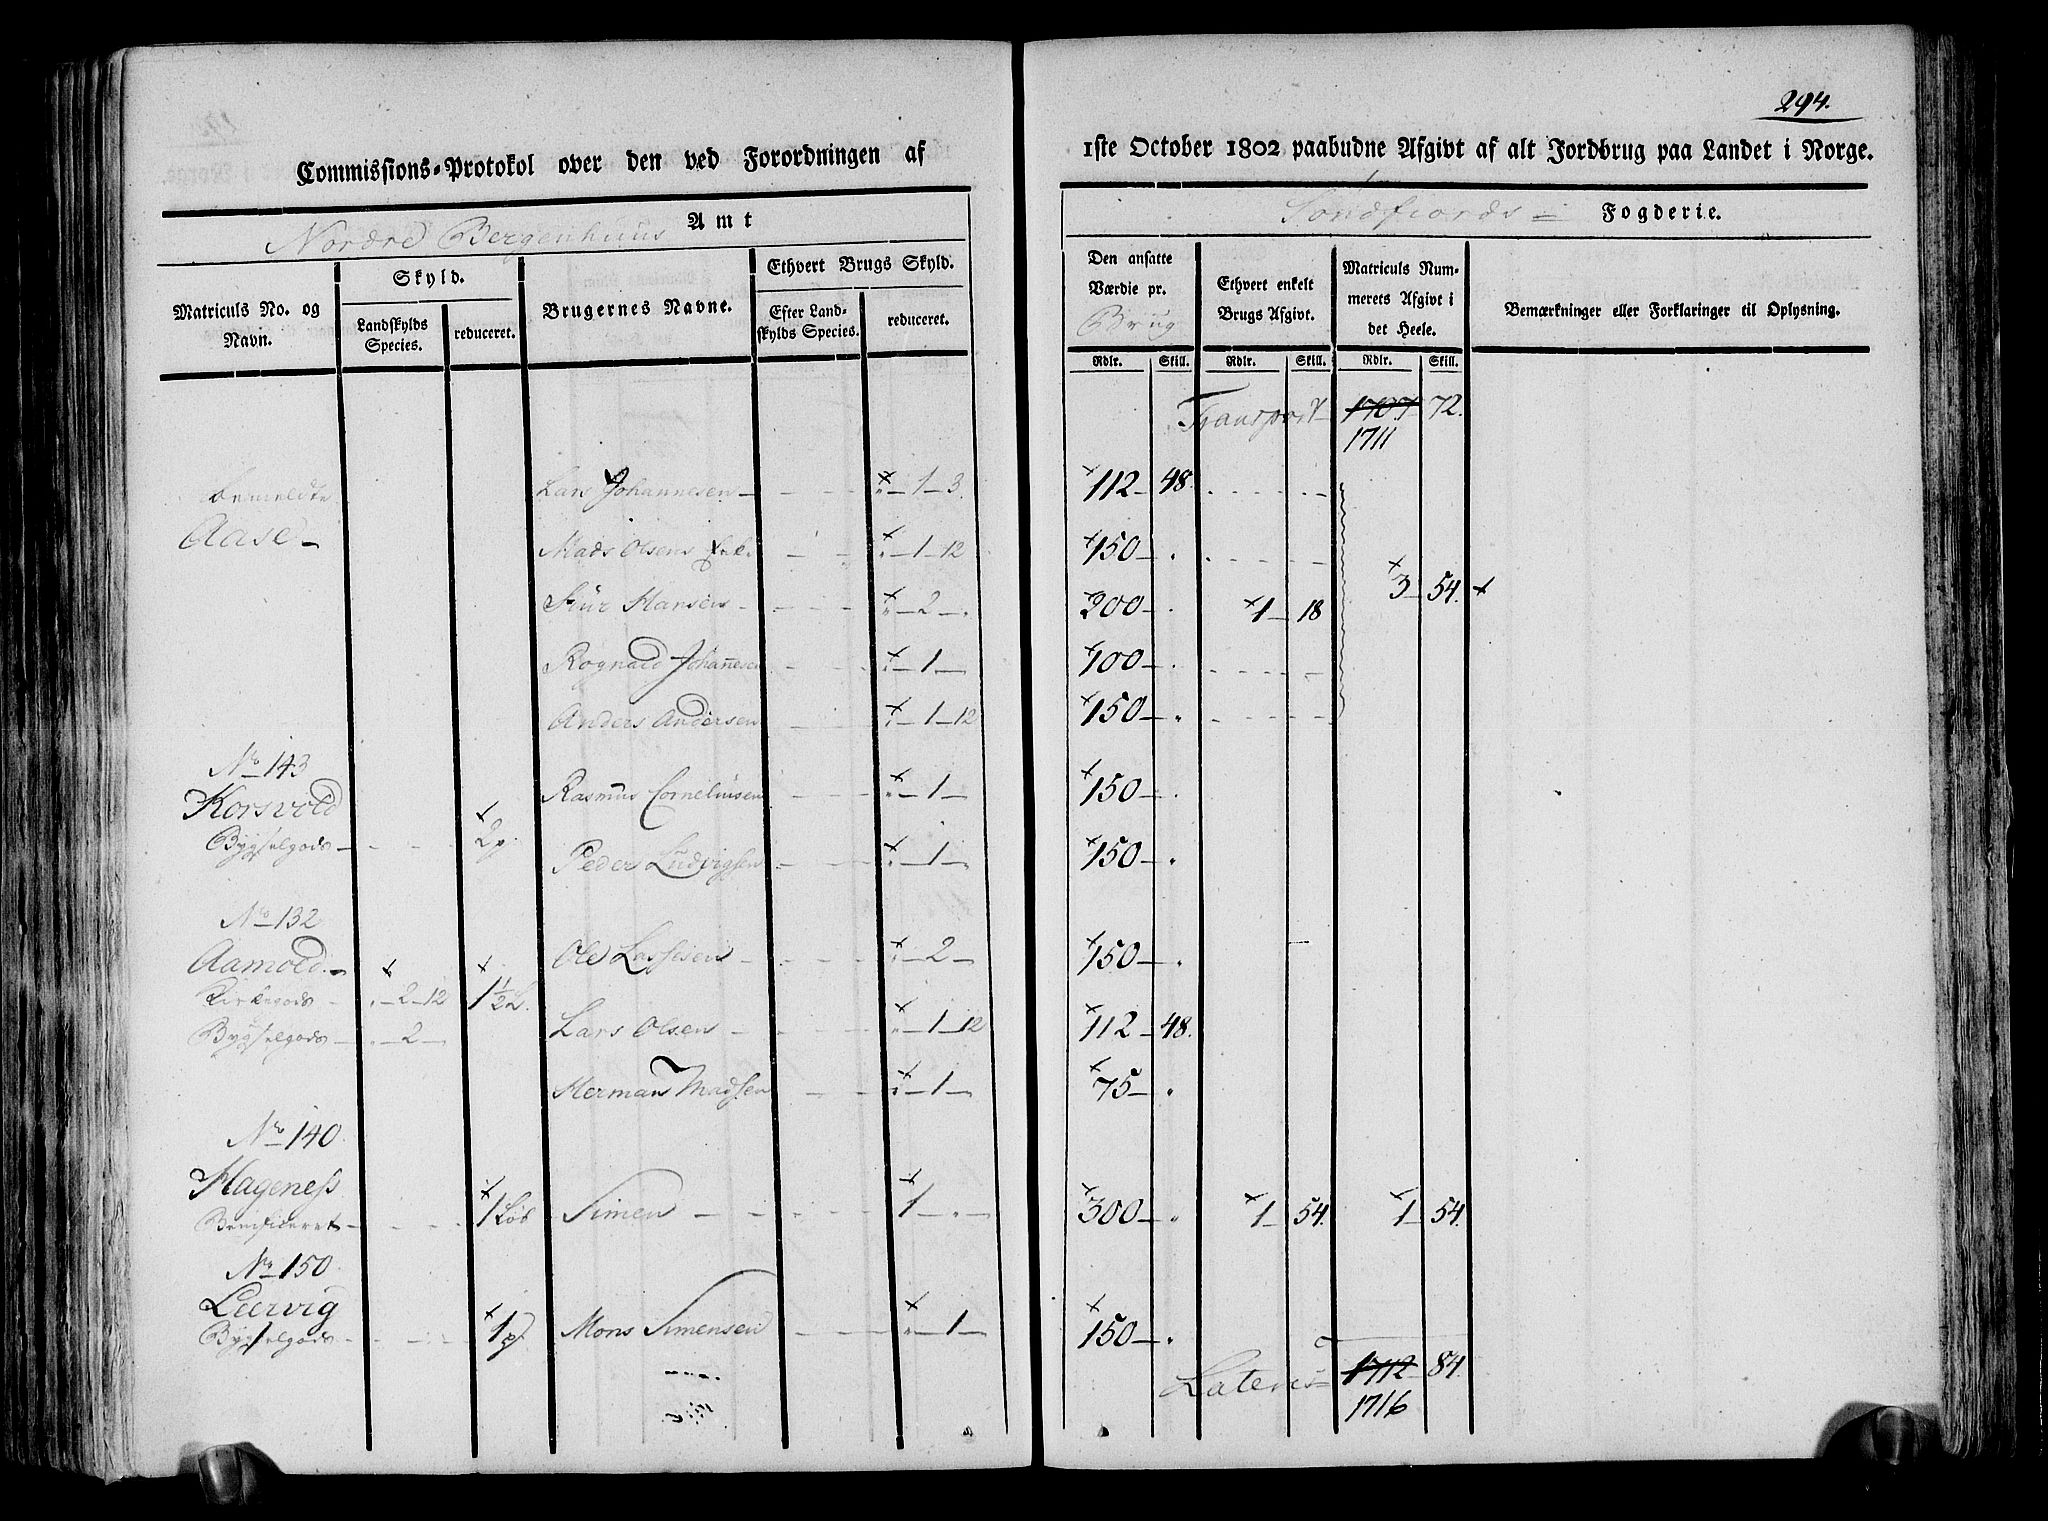 294.
Commissions-Protokol over den ved Forordningen af 1ste October 1802 paabudne Afgivt af alt Jordbrug paa Landet i Norge.
Nordre Bergenhuus Amt
Søndfiords Fogderie.
Matriculs No. og Navn.
Skyld.
Landskylds Species.
reduceret.
Brugernes Navne.
Ethvert Brugs Skyld.
Efter Landskylds Species.
reduceret.
Den ansatte Værdie pr. Brug
Ethvert enkelt Brugs Afgivt.
Matriculs Nummerets Afgivt i det Heele.
Bemærkninger eller Forklaringer til Oplysning.
Rdlr. Skill. Rdlr. Skill. Rdlr. Skill.
Transport 1707 72.
1711
bemeldte Lars Johannesen - 1 - 3. 112 - 48.
Aase - Mads Olsens - 1 - 12 150 - "
3 - 54.
Hansen - 2 - " 200 - " 1 - 18
Rognald Johannesen - 1 - 100 - "
Anders Andersen - 1 - 12 150 - "
No 143
Korsvold Rasmus Corneliusen - 1 - 150 - "
Bygselgods - 2 p. Peder Ludvigsen - 1 - 150 - "
No 132
Aamold - Ole Lassesen - 2 - 150 - "
Kirkegods - 2 - 12 1 1/2 L.
Bygselgods - 2 - Lars Olsen - 1 - 12 112 - 48.
Herman Madsen - 1 - 75 - "
No 140.
Hageness
Beneficeret - 1 Løb Simen - 1 - " - 300 - " 1 - 54. 1 - 54.
No 150.
Leervig
Bygselgods - 1 p Mons Simensen - 1 - 150 - "
Lateris 1712 84.
1716